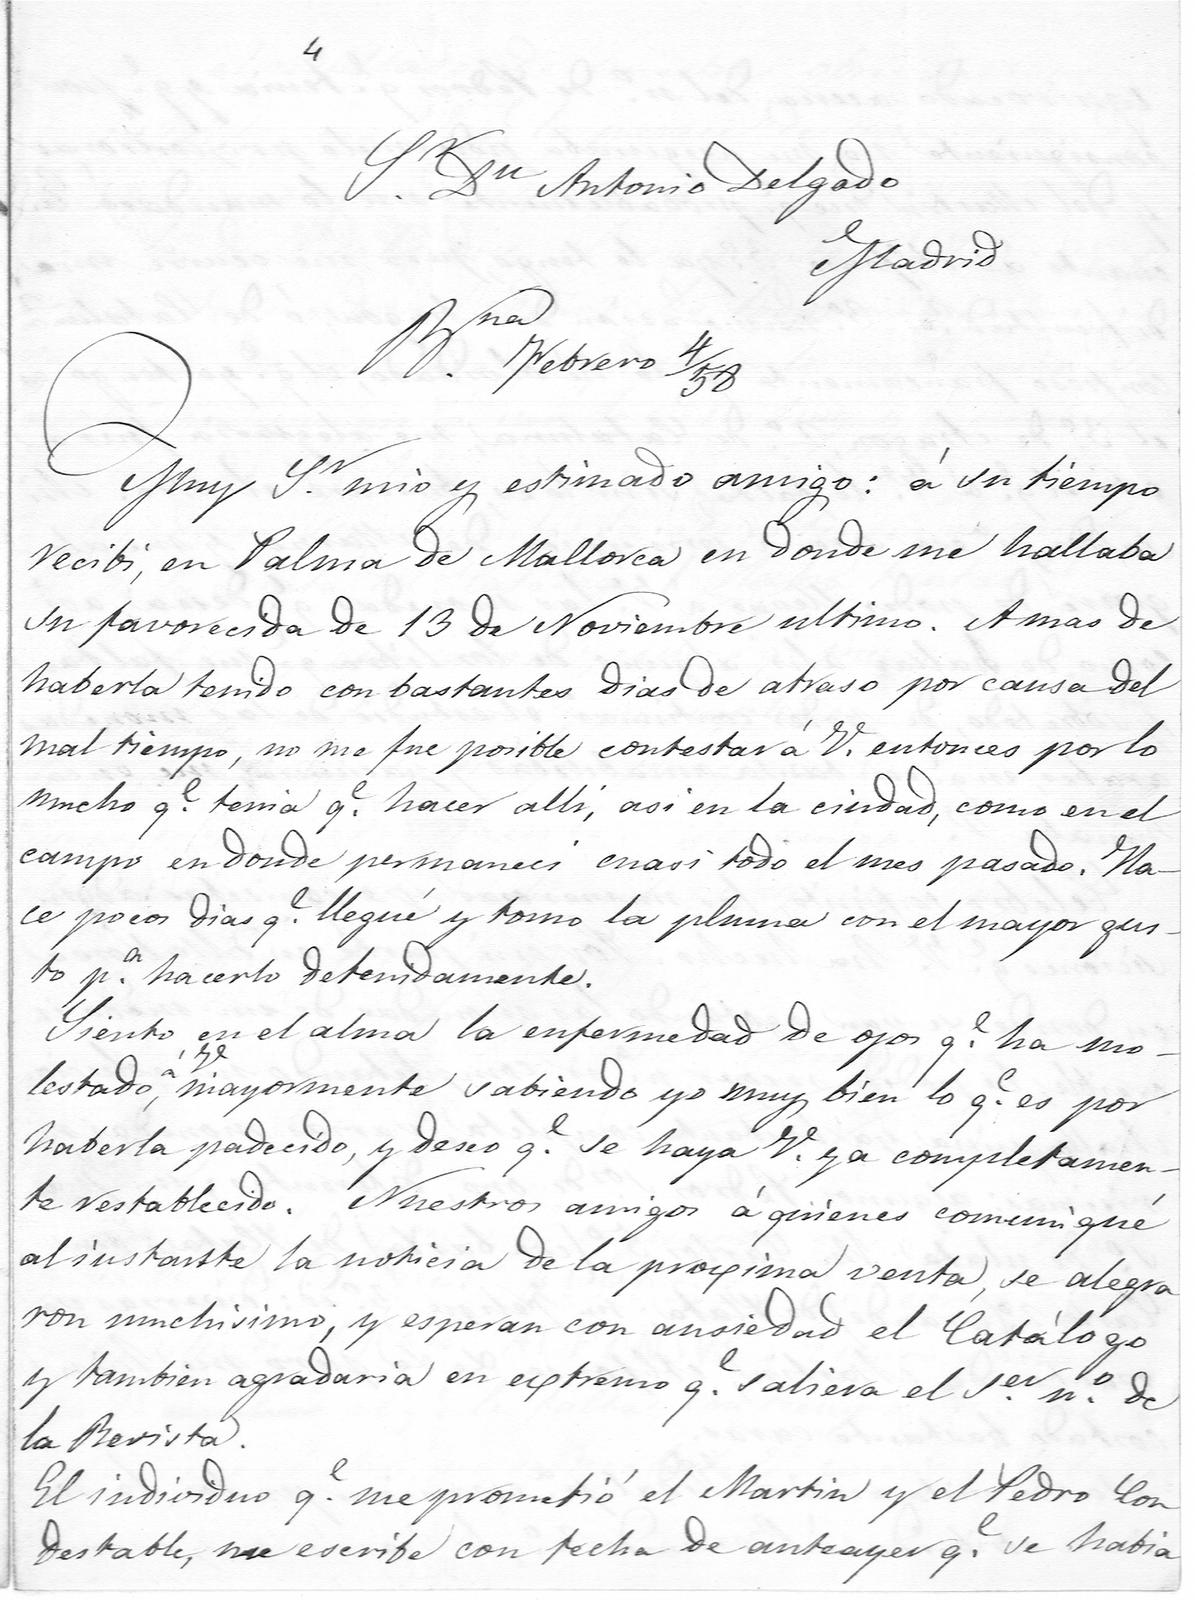 4
S.r Dn Antonio Delgado
Madrid
B.na Febrero 4/58
Muy S.r mio y estimado amigo: á su tiempo
recibi, en Palma de Mallorca en donde me hallaba
su favorecida de 13 de Noviembre ultimo. A mas de
haberla tenido con bastantes dias de atraso por causa del
mal tiempo, no me fue posible contestar á V. entonces por lo
mucho q.e tenia q.e hacer alli, asi en la ciudad, como en el
campo en donde permaneci cuasi todo el mes pasado. Ha-
ce pocos dias q.e llegué y tomo la pluma con el mayor gus-
to p.a hacerlo detenidamente.
Siento en el alma la enfermedad de ojos q.e ha mo-
lestado á V, mayormente sabiendo yo muy bien lo q.e es por
haberla padecido, y deseo q.e se haya V. ya completamen-
te restablecido. Nuestros amigos á quienes comuniqué
al instante la noticia de la proxima venta, se alegra
ron muchisimo, y esperan con ansiedad el Catálogo
y tambien agradaria en extremo q.e saliera el 1.er n.o de
la Revista.
El individuo q.e me prometió el Martin y el Pedro Con
destable, me escribe con fecha de anteayer q.e se habia